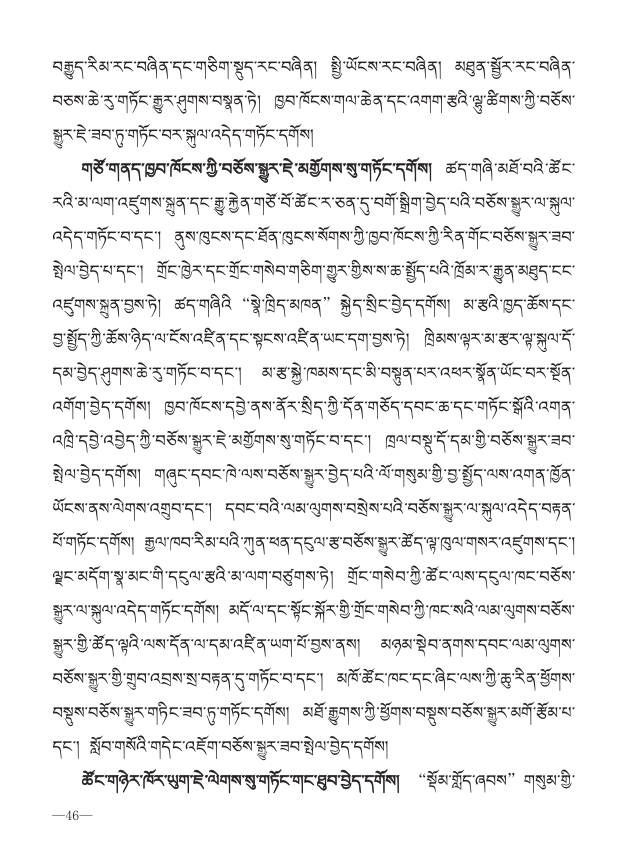 བརྒྱུད་རིམ་རང་བཞིན་དང་གཅིག་སྡུད་རང་བཞིན། སྤྱི་ཡོངས་རང་བཞིན། མཐུན་སྦྱོར་རང་བཞིན་
བཅས་ཆེ་རུ་གཏོང་རྒྱུར་ཤུགས་བསྣན་ཏེ། ཁྱབ་ཁོངས་གལ་ཆེན་དང་འགག་རྩའི་ལྷུ་ཚིགས་ཀྱི་བཅོས་
སྒྱུར་ཇེ་ཟབ་ཏུ་གཏོང་བར་སྐུལ་འདེད་གཏོང་དགོས།
གཙོ་གནད་ཁྱབ་ཁོངས་ཀྱི་བཅོས་སྒྱུར་ཇེ་མགྱོགས་སུ་གཏོང་དགོས། ཚད་གཞི་མཐོ་བའི་ཚོང་
རའི་མ་ལག་འཛུགས་སྐྲུན་དང་རྒྱུ་རྐྱེན་གཙོ་བོ་ཚོང་ར་ཅན་དུ་བགོ་སྒྲིག་བྱེད་པའི་བཅོས་སྒྱུར་ལ་སྐུལ་
འདེད་གཏོང་བ་དང་། ནུས་ཁུངས་དང་ཐོན་ཁུངས་སོགས་ཀྱི་ཁྱབ་ཁོངས་ཀྱི་རིན་གོང་བཅོས་སྒྱུར་ཟབ་
སྤེལ་བྱེད་པ་དང་། གྲོང་ཁྱེར་དང་གྲོང་གསེབ་གཅིག་གྱུར་གྱིས་ས་ཆ་སྤྱོད་པའི་ཁྲོམ་ར་རྒྱུན་མཐུད་ངང་
འཛུགས་སྐྲུན་བྱས་ཏེ། ཚད་གཞིའི “སྣེ་ཁྲིད་མཁན” སྐྱེད་སྲིང་བྱེད་དགོས། མ་རྩའི་ཁྱད་ཆོས་དང་
བྱ་སྤྱོད་ཀྱི་ཆོས་ཉིད་ལ་ངོས་འཛིན་དང་སྟངས་འཛིན་ཡང་དག་བྱས་ཏེ། ཁྲིམས་ལྟར་མ་རྩར་ལྟ་སྐུལ་དོ་
དམ་བྱེད་ཤུགས་ཆེ་རུ་གཏོང་བ་དང་། མ་རྩ་སྐྱེ་ཁམས་དང་མི་བསྟུན་པར་འཕར་སྣོན་ཡོང་བར་སྔོན་
འགོག་བྱེད་དགོས། ཁྱབ་ཁོངས་དབྱེ་ནས་ནོར་སྲིད་ཀྱི་དོན་གཅོད་དབང་ཆ་དང་གཏོང་སྒོའི་འགན་
འཁྲི་དབྱེ་འབྱེད་ཀྱི་བཅོས་སྒྱུར་ཇེ་མགྱོགས་སུ་གཏོང་བ་དང་། ཁྲལ་བསྡུ་དོ་དམ་གྱི་བཅོས་སྒྱུར་ཟབ་
སྤེལ་བྱེད་དགོས། གཞུང་དབང་ཁེ་ལས་བཅོས་སྒྱུར་བྱེད་པའི་ལོ་གསུམ་གྱི་བྱ་སྤྱོད་ལས་འགན་ཁྱོན་
ཡོངས་ནས་ལེགས་འགྲུབ་དང་། དབང་བའི་ལམ་ལུགས་བསྲེས་པའི་བཅོས་སྒྱུར་ལ་སྐུལ་འདེད་བརྟན་
པོ་གཏོང་དགོས། རྒྱལ་ཁབ་རིམ་པའི་ཀུན་ཕན་དངུལ་རྩ་བཅོས་སྒྱུར་ཚོད་ལྟ་ཁུལ་གསར་འཛུགས་དང་།
ལྗང་མདོག་སྣ་མང་གི་དངུལ་རྩའི་མ་ལག་བཙུགས་ཏེ། གྲོང་གསེབ་ཀྱི་ཚོང་ལས་དངུལ་ཁང་བཅོས་
སྒྱུར་ལ་སྐུལ་འདེད་གཏོང་དགོས། མདོ་ལ་དང་སྟོང་སྐོར་གྱི་གྲོང་གསེབ་ཀྱི་ཁང་སའི་ལམ་ལུགས་བཅོས་
སྒྱུར་གྱི་ཚོད་ལྟའི་ལས་དོན་ལ་དམ་འཛིན་ཡག་པོ་བྱས་ནས། མཉམ་སྡེབ་ནགས་དབང་ལམ་ལུགས་
བཅོས་སྒྱུར་གྱི་གྲུབ་འབྲས་སྲ་བརྟན་དུ་གཏོང་བ་དང་། མཁོ་ཚོང་ཁང་དང་ཞིང་ལས་ཀྱི་ཆུ་རིན་ཕྱོགས་
བསྡུས་བཅོས་སྒྱུར་གཏིང་ཟབ་ཏུ་གཏོང་དགོས། མཐོ་རྒྱུགས་ཀྱི་ཕྱོགས་བསྡུས་བཅོས་སྒྱུར་མགོ་རྩོམ་པ་
དང་། སློབ་གསོའི་གདེང་འཇོག་བཅོས་སྒྱུར་ཟབ་སྤེལ་བྱེད་དགོས།
ཚོང་གཉེར་ཁོར་ཡུག་ཇེ་ལེགས་སུ་གཏོང་གང་ཐུབ་བྱེད་དགོས། “སྡོམ་གློད་ཞབས” གསུམ་གྱི་
—46—